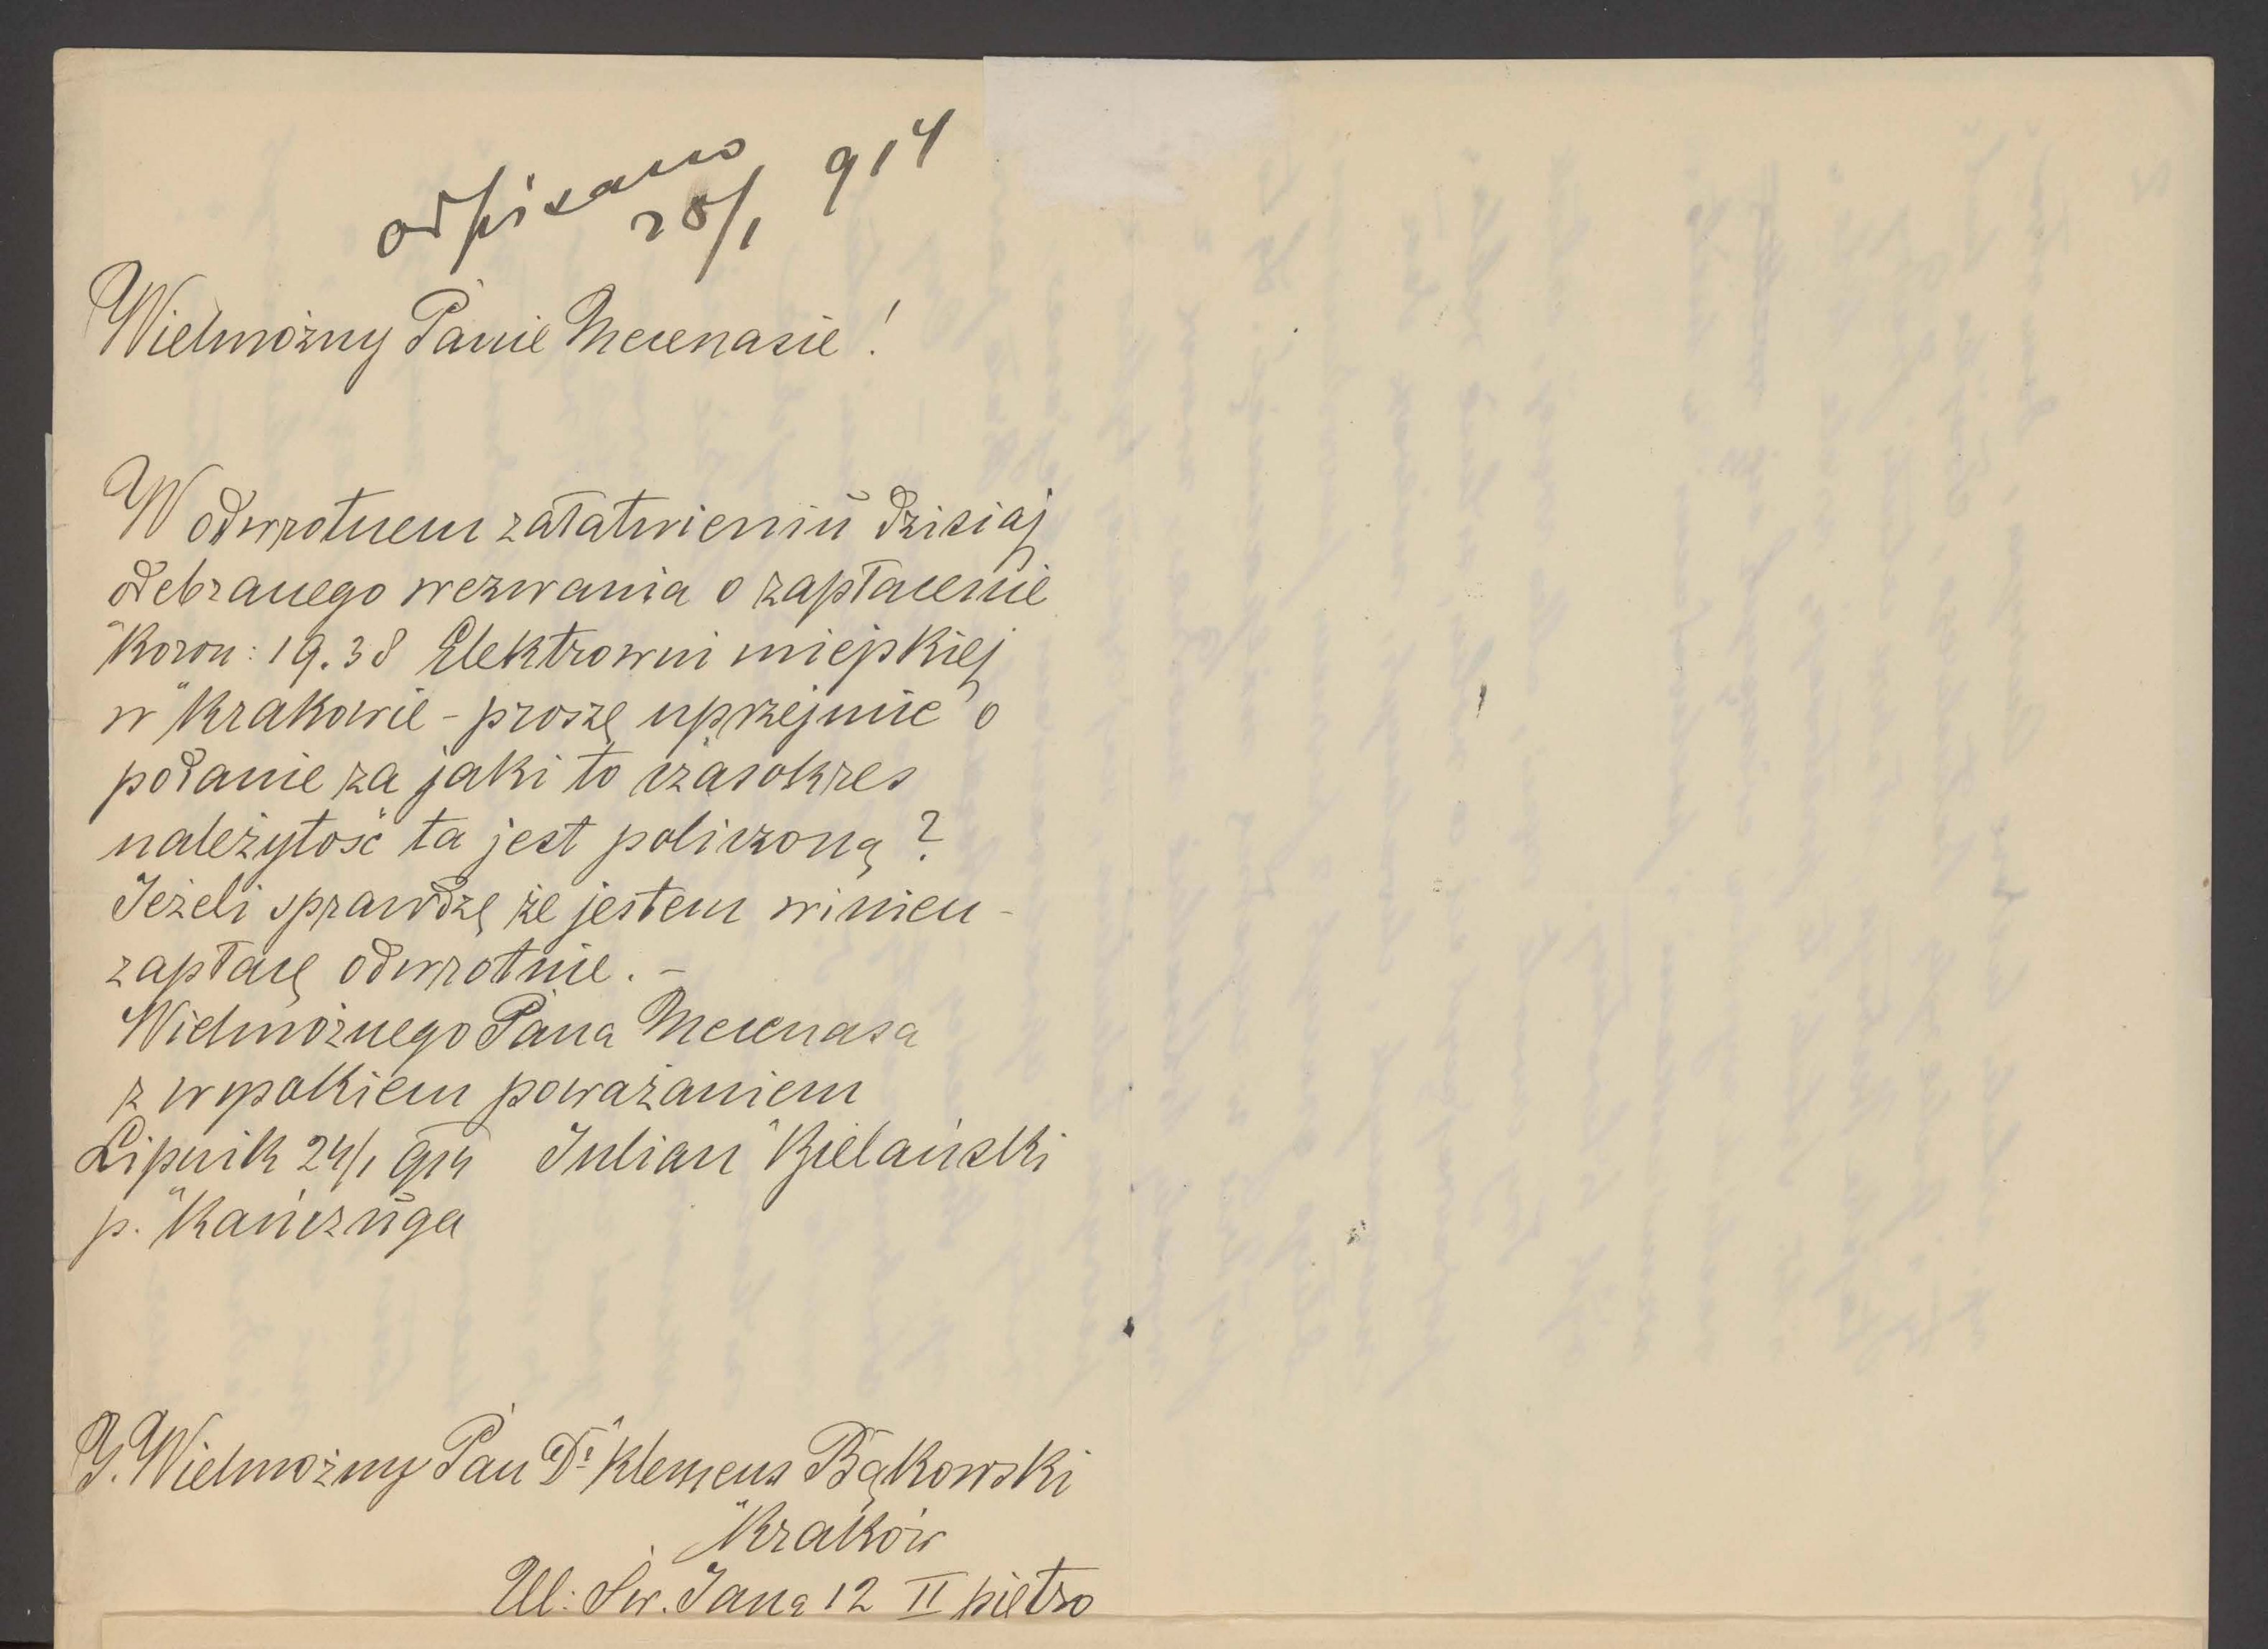 odpisano
28/1 914
Wielmożny Panie Mecenasie!
W odwrotnem załatwieniu dzisiaj
odebranego wezwania o zapłacenie
Koron: 19.38 Elektrowni miejskiej
w Krakowie - proszę uprzejmie o
podanie za jaki to czasokres
należytość ta jest policzoną?
Jeżeli sprawdzę że jestem winien -
zapłacę odwrotnie. -
Wielmożnego Pana Mecenasa
z wysokiem poważaniem
Lipnik 24/1 914 Julian Bielański
p. Kańczuga
J. Wielmożny Pan Dr Klemens Bąkowski
Kraków
Ul: Św. Jana 12 II piętro